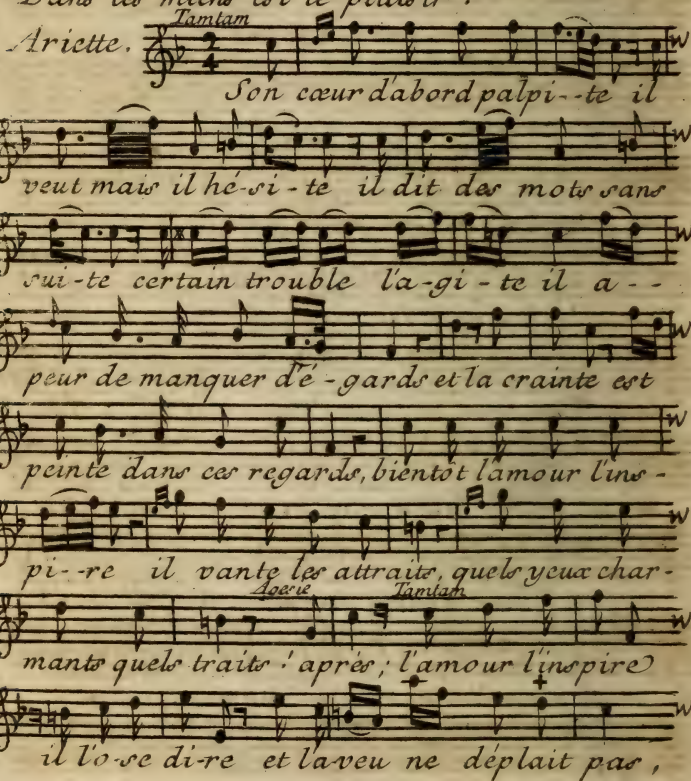 Dans les miens est le plaisir.
Tamtam
Ariette. 2 4
Son cœur d'abord palpi--te il
veut mais il hé-si-te il dit des mots sans
sui-te certain trouble l'a-gi-te il a--
peur de manquer d'é-gards et la crainte est
peinte dans ces regards, bientôt l'amour l'ins-
pi--re il vante les attraits, quels yeux char-
Agerie Tamtam
mants quels traits! aprés; l'amour l'inspire
il l'o-se di-re et l'aveu ne déplait pas,